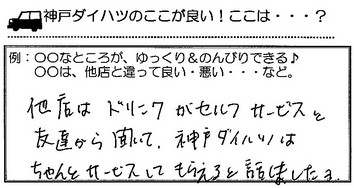 神戸ダイハツのここが良い！ここは・・・？
例：〇〇なところが、ゆっくり＆のんびりできる♪
〇〇は、他店と違って良い・悪い・・・など。
他店は ドリンクがセルフサービスと
友達から聞いて、神戸ダイハツは
ちゃんとサービスしてもらえると話しましたヨ